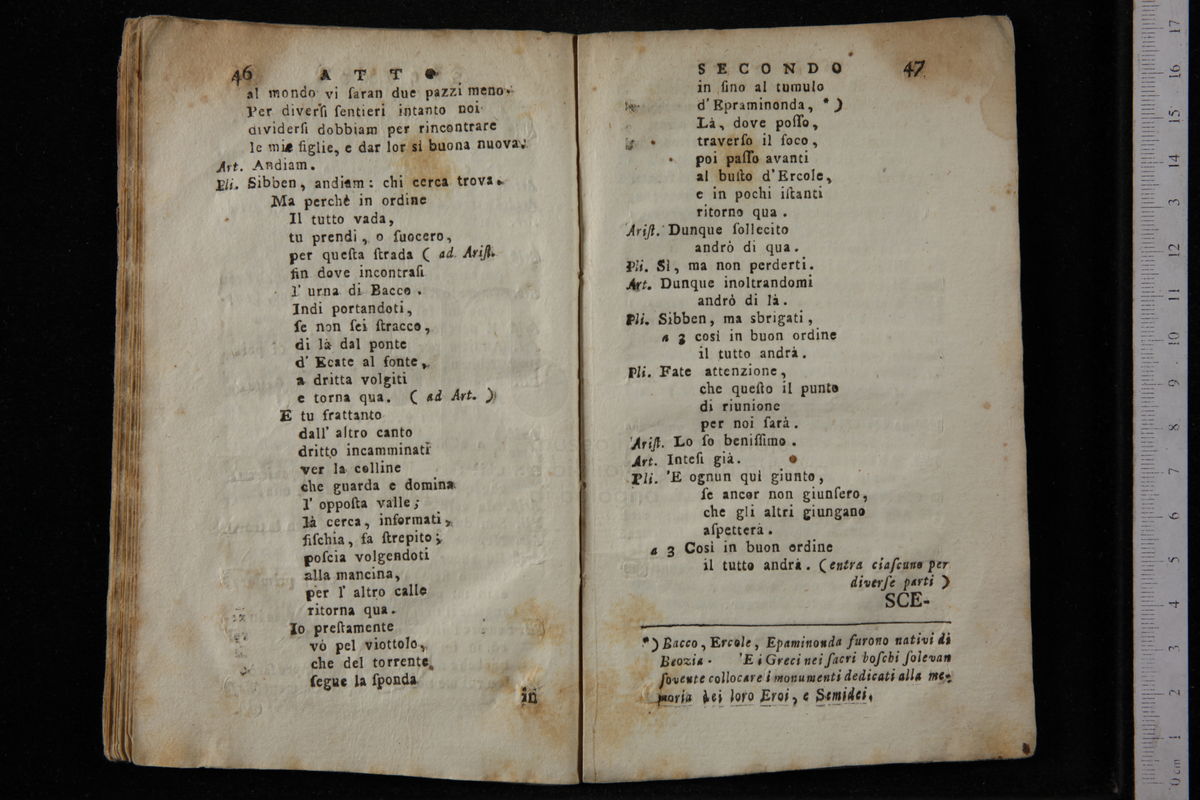 46 A T T O
al mondo vi ſaran due pazzi meno.
Per diverſi ſentieri intanto noi
dividerſi dobbiam per rincontrare
le mie figlie, e dar lor sì buona nuova.
Art. Andiam.
Pli. Sibben, andiam: chi cerca trova.
Ma perchè in ordine
Il tutto vada,
tu prendi, o ſuocero,
per queſta ſtrada ( ad Ariſt.
fin dove incontraſi
l' urna di Bacco.
Indi portandoti,
ſe non ſei ſtracco,
di là dal ponte
d' Ecate al fonte,
a dritta volgiti
e torna qua. ( ad Art. )
E tu frattanto
dall' altro canto
dritto incamminati
ver la colline
che guarda e domina
l' oppoſta valle;
là cerca, informati,
fiſchia, fa ſtrepito;
poſcia volgendoti
alla mancina,
per l' altro calle
ritorna qua.
Io preſtamente
vò pel viottolo,
che del torrente
ſegue la ſponda
in
SECONDO 47
in ſino al tumulo
d'Epraminonda, *)
Là, dove poſſo,
traverſo il foco,
poi paſſo avanti
al buſto d'Ercole,
e in pochi iſtanti
ritorno qua.
Ariſt. Dunque ſollecito
andrò di qua.
Pli. Sì, ma non perderti.
Art. Dunque inoltrandomi
andrò di là.
Pli. Sibben, ma sbrigati,
a 3 così in buon ordine
il tutto andrà.
Pli. Fate attenzione,
che queſto il punto
di riunione
per noi ſarà.
Ariſt. Lo ſo beniſſimo.
Art. Inteſi già.
Pli. 'E ognun quì giunto,
ſe ancor non giunſero,
che gli altri giungano
aſpetterà.
a 3 Così in buon ordine
il tutto andrà. (entra ciaſcuno per
diverſe parti )
SCE-
*) Bacco, Ercole, Epaminonda furono nativi di
Beozia. 'E i Greci nei ſacri boſchi ſolevan
ſovente collocare i monumenti dedicati alla me-
moria dei loro Eroi, e Semidei.
17
16
15
14
13
12
11
10
9
8
7
6
5
4
3
2
1
0 cm